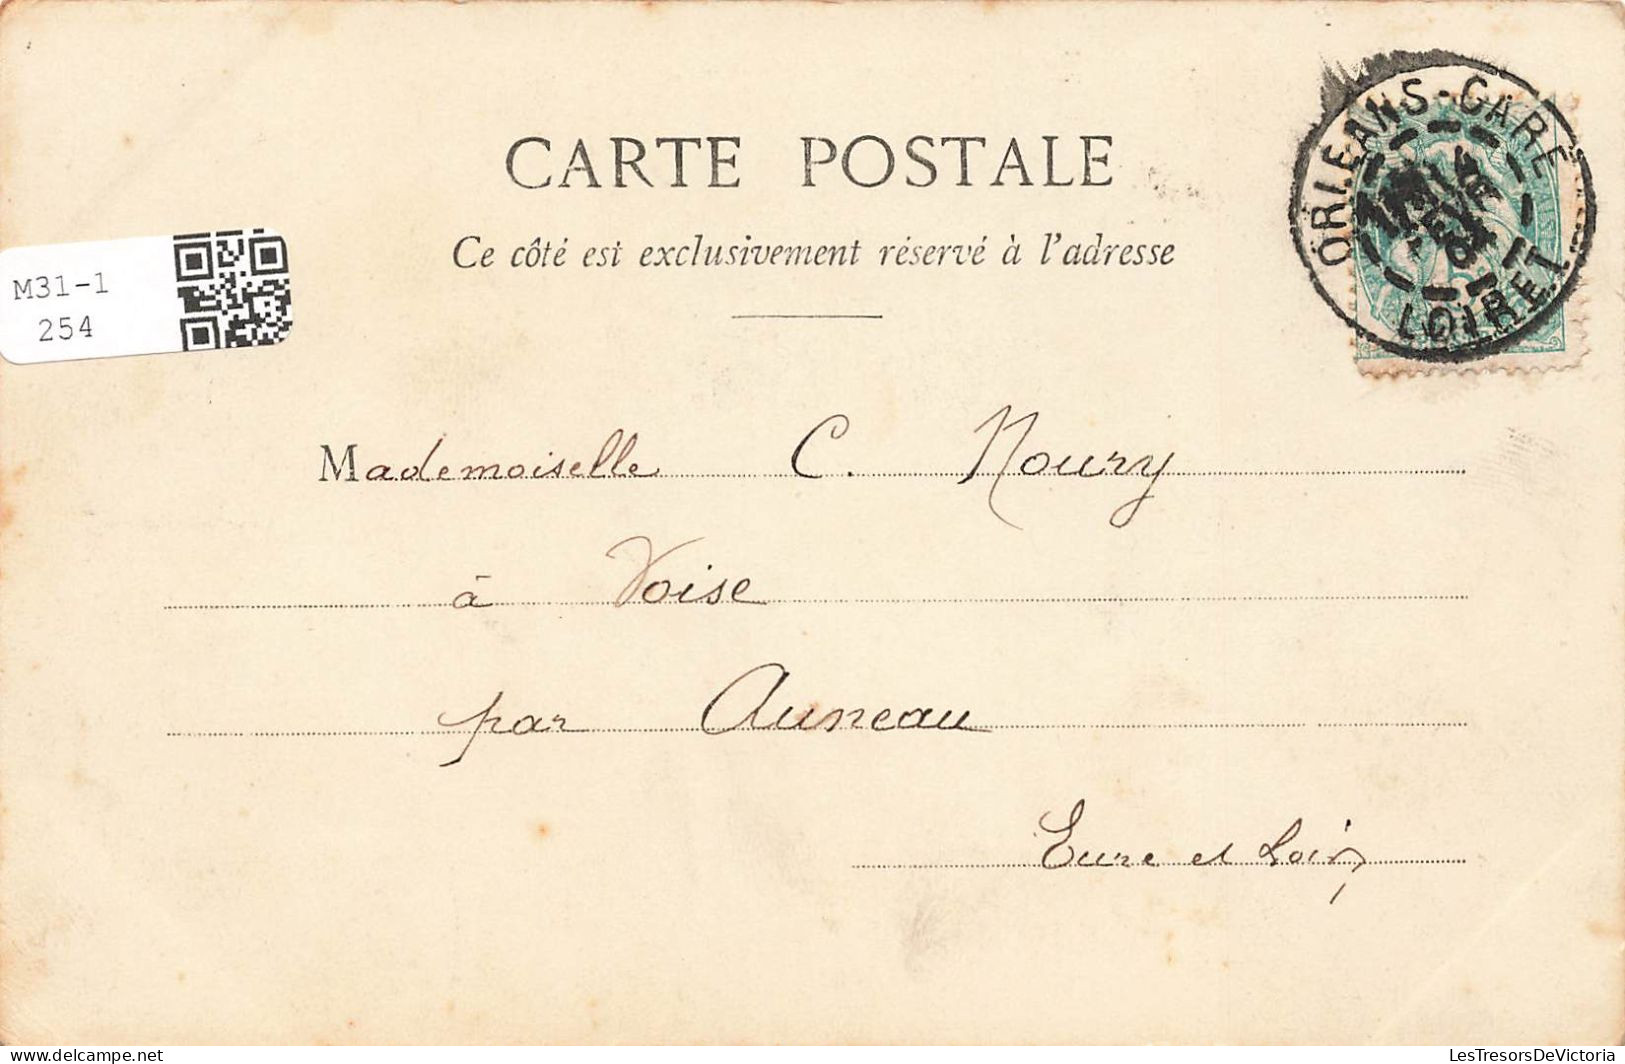 CARTE POSTALE
Ce côté est exclusivement réservé à l'adresse
ORLEANS-GARE
LOIRET
M31-1
254
Mademoiselle C. Noury
à Voise
par Auneau
Eure et Loir
delcampe.net
LesTresorsDeVictoria